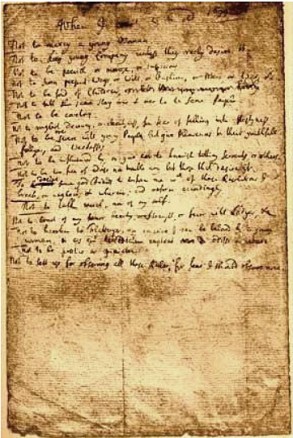 When I come to be old.
Not to marry a young Woman.
Not to keep young Company unless they really desire it.
Not to be peevish or morose, or suspicious
Not to scorn present Ways, or Wits, or Fashions, or Men, or War, &c.
Not to be fond of Children,
Not to tell the same story over & over to the same People.
Not to be covetous.
Not to neglect decency, or cleanliness, for fear of falling into Nastyness.
Not to be over severe with young People, but give Allowances for their youthfull
follyes, and Weaknesses.
Not to be influenced by, or give ear to knavish tatling Servants, or others.
Not to be too free of advise nor trouble any but those that desire it.
To desire some good Friends to inform me wch of these Resolutions I
break, or neglect, & wherein; and reform accordingly.
Not to talk much, nor of my self.
Not to boast of my former beauty, or strength, or favor with Ladyes, &c.
Not to hearken to Flatteryes, nor conceive I can be beloved by a young
woman,
Not to be positive or opiniative.
Not to sett up for observing all these Rules, for fear I should observe none.